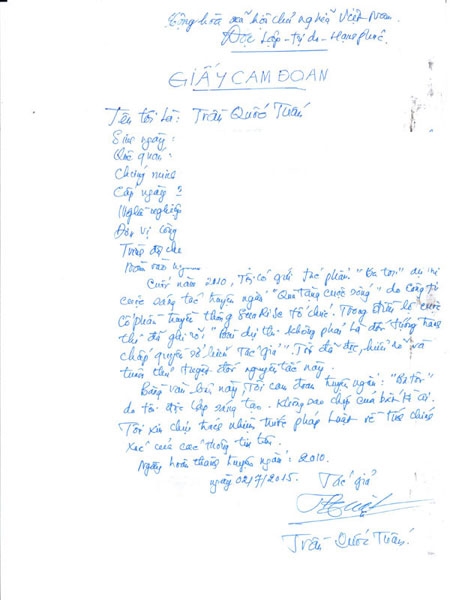 Cộng hòa xã hội chủ nghĩa Việt Nam.
Độc lập - tự do - Hạnh phúc.
GIẤY CAM ĐOAN
Tên tôi là: Trần Quốc Tuấn
Sinh ngày:
Quê quán:
Chứng minh
Cấp ngày
Nghề nghiệp
Đơn vị công
Trình độ
Cuối năm 2010, Tôi có gửi tác phẩm "Ba tôi" dự thi
cuộc sáng tác truyện ngắn "Quà tặng cuộc sống" do công ti
cổ phần truyền thông tổ chức. Trong điều lệ cuộc
thi đã ghi rõ: "Bài dự thi không phải là đối tượng tranh
chấp quyền sở hữu Tác giả". Tôi đã đọc, hiểu rõ và
tuân thủ tuyệt đối nguyên tắc này.
Bằng văn bản này, Tôi cam đoan truyện ngắn: "Ba tôi"
do tôi độc lập sáng tạo. Không sao chép của bất kì ai.
Tôi xin chịu trách nhiệm trước pháp luật về tính chính
xác của các thông tin trên.
Ngày hoàn thành truyện ngắn: 2010.
ngày 02/7/2015. Tác giả
Trần Quốc Tuấn.